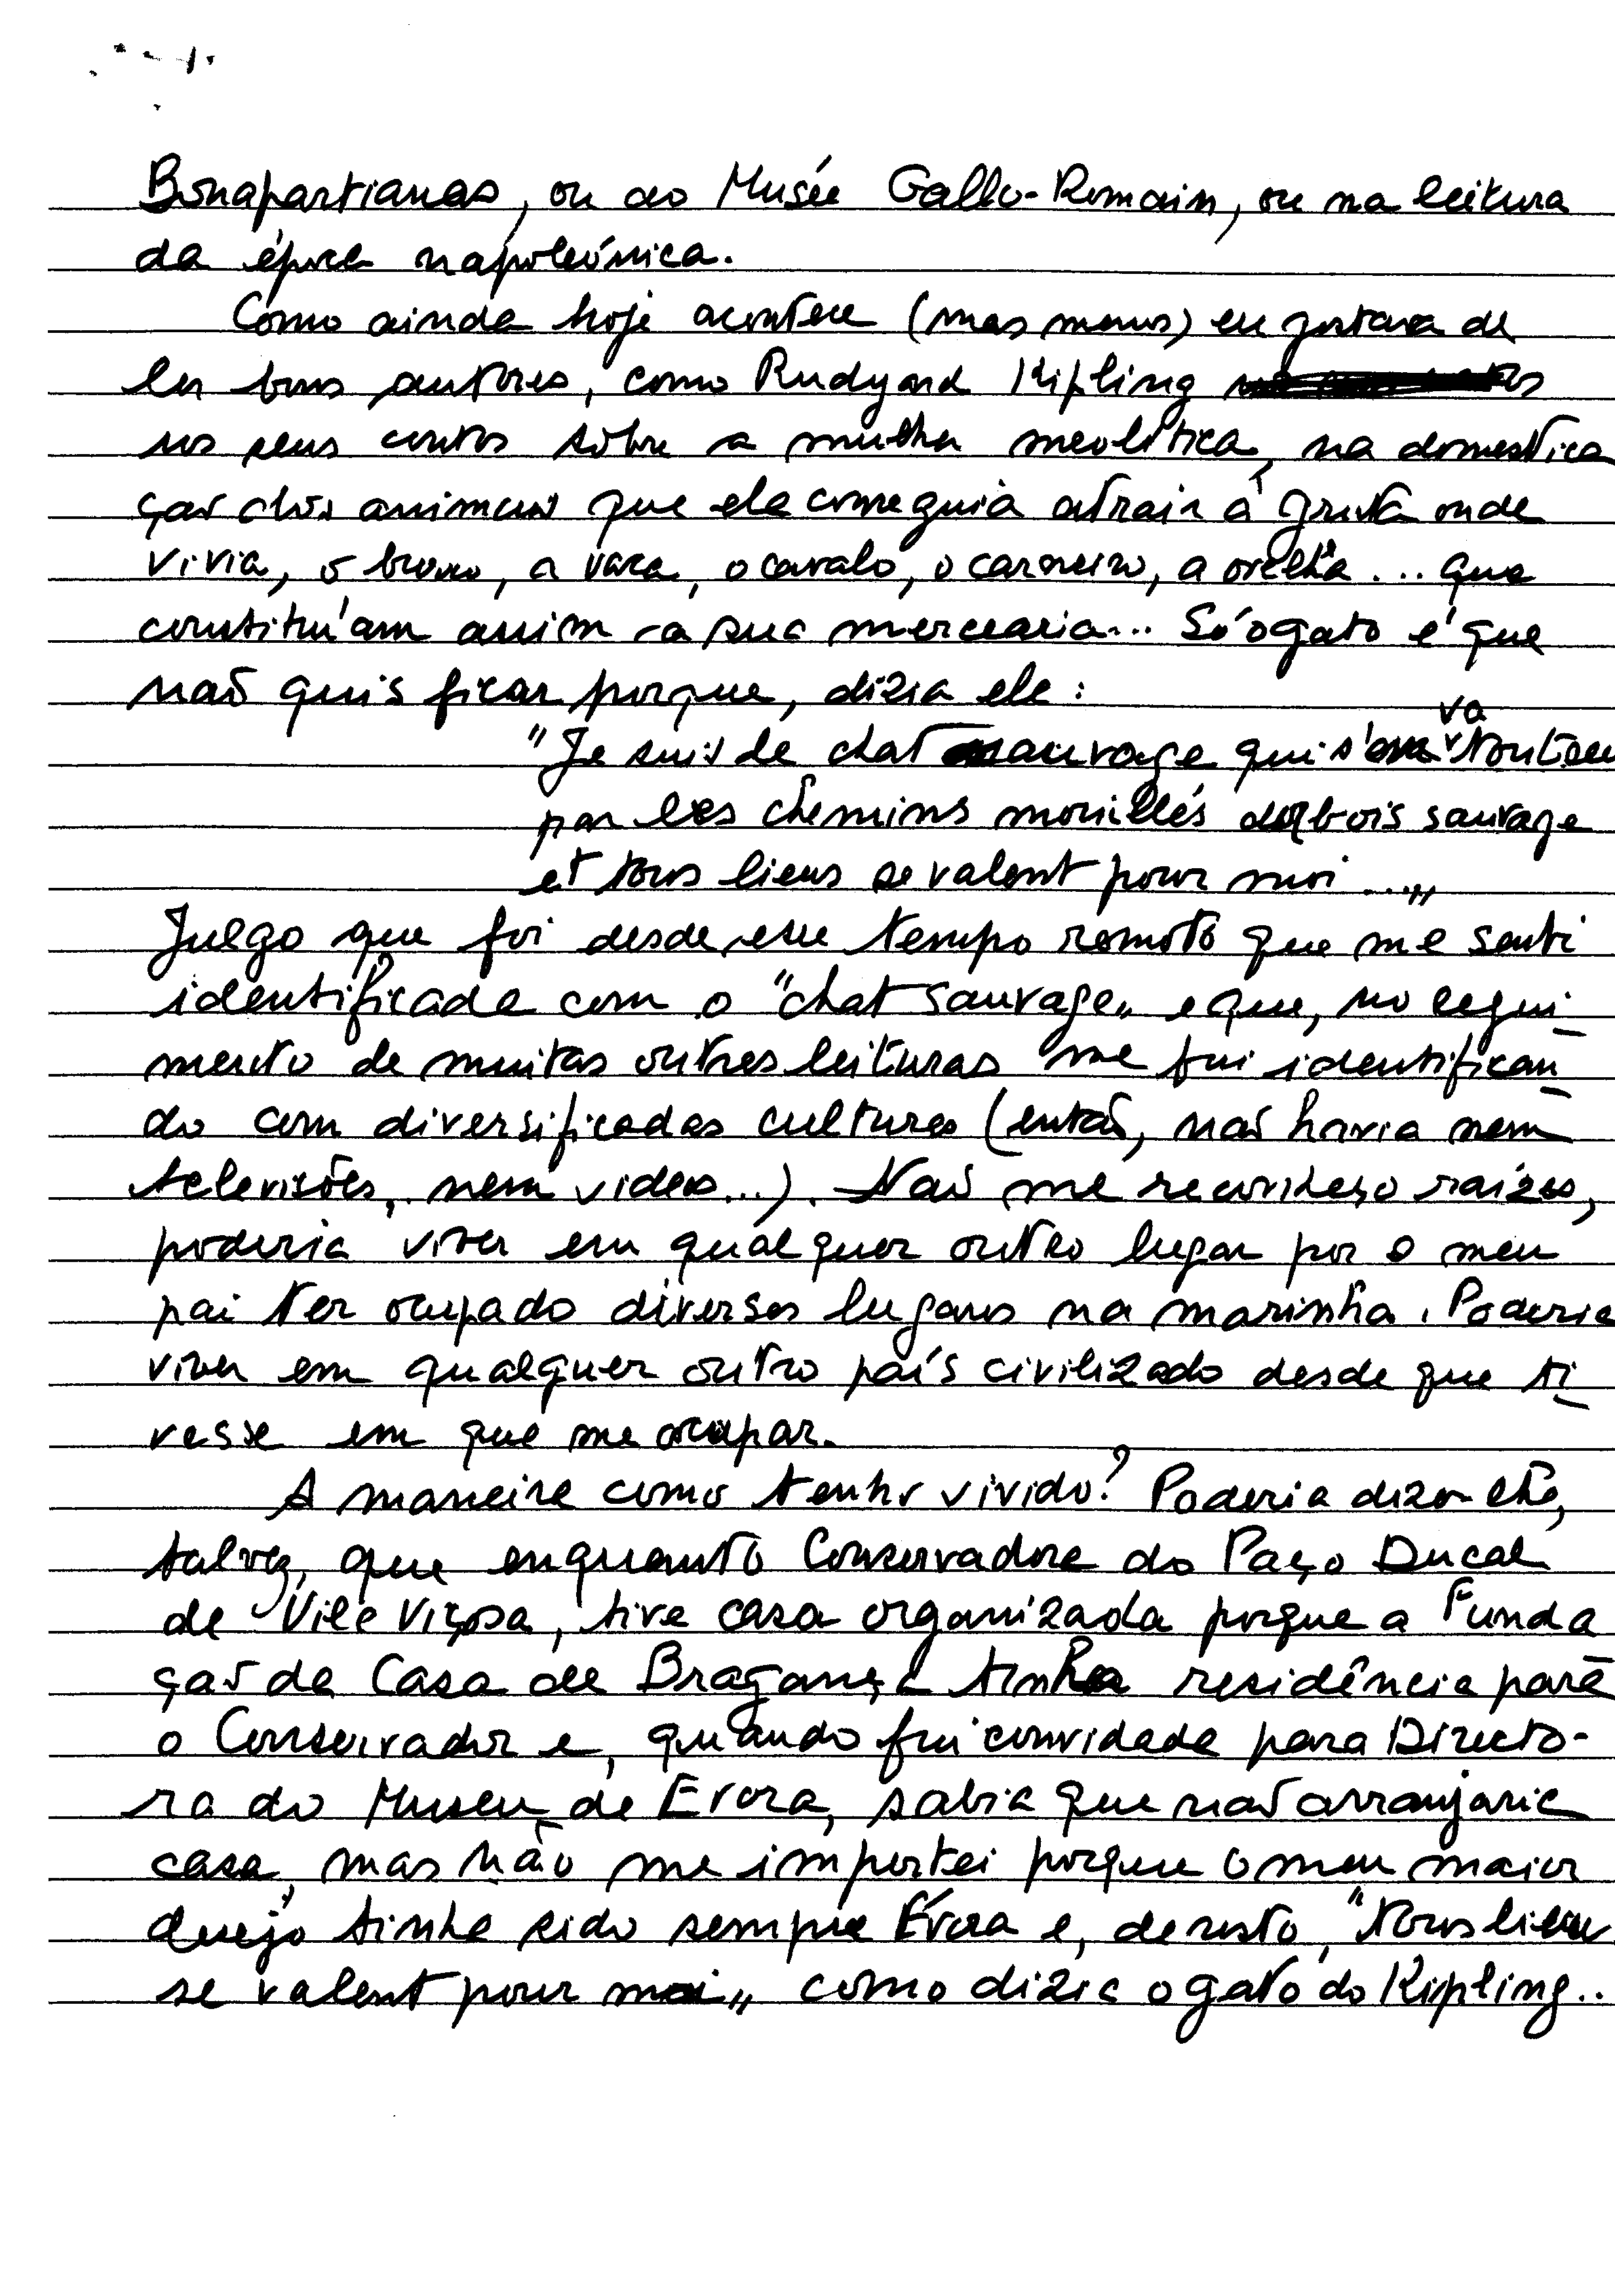 Bonapartianas, ou ao Musée Gallo-Romain, ou na leitura
da época napoleónica.
Como ainda hoje acontece (mas menos) eu gostava de
ler bons autores, como Rudyard Kipling
nos seus contos sôbre a mulher neolítica, na domestica
ção dos animais que ela conseguia atrair à gruta onde
vivia, o burro, a vaca, o cavalo, o carneiro, a ovelha... que
constituíam assim a sua mercearia... Só o gato é que
não quis ficar porque, dizia ele:
"Je suis le chat sauvage qui s'en va tout seul
par les chemins mouillés des bois sauvage
et tous lieus se valent pour moi...„
Julgo que foi desde esse tempo remoto que me senti
identificada com o "chat sauvage„ e que, no segui
mento de muitas outras leituras me fui identifican
do com diversificadas culturas (então, não havia nem
televisões, nem videos...). Não me reconheço raízes,
poderia viver em qualquer outro lugar por o meu
pai ter ocupado diversos lugares na marinha. Poderia
viver em qualquer outro país civilizado desde que ti
vesse em que me ocupar.
A maneira como tenho vivido? Poderia dizer-lhe,
talvez, que enquanto Conservadora do Paço Ducal
de Vila Viçosa, tive casa organizada porque a Funda
ção da Casa de Bragança tinha residência para
o Conservador e, quando fui convidada para Directo-
ra do Museu de Évora, sabia que não arranjaria
casa, mas não me importei porque o meu maior
desejo tinha sido sempre Évora e, de resto, "tous lieus
se valent pour moi„ como dizia o gato do Kipling..